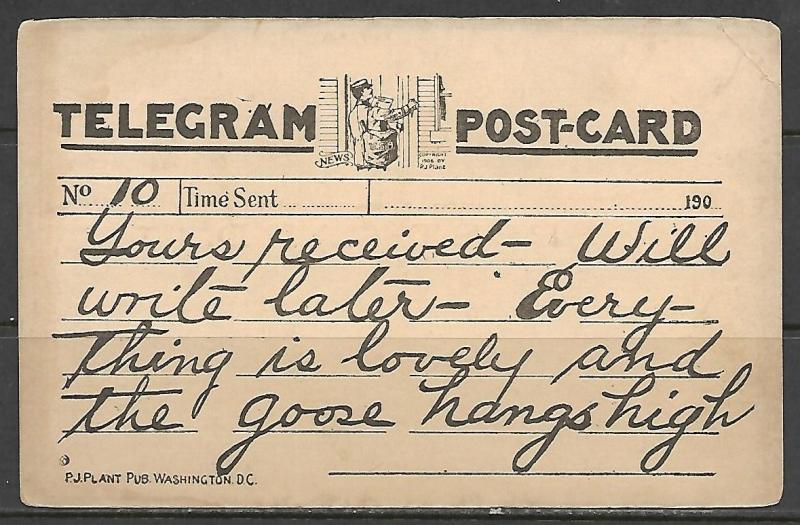 TELEGRAM POST-CARD
NEWS
COPYRIGHT
1906 BY
P.J. PLANT
No 10 Time Sent 190
Yours received- Will
write later- Every-
thing is lovely and
the goose hangs high
P.J. PLANT PUB. WASHINGTON. D.C.